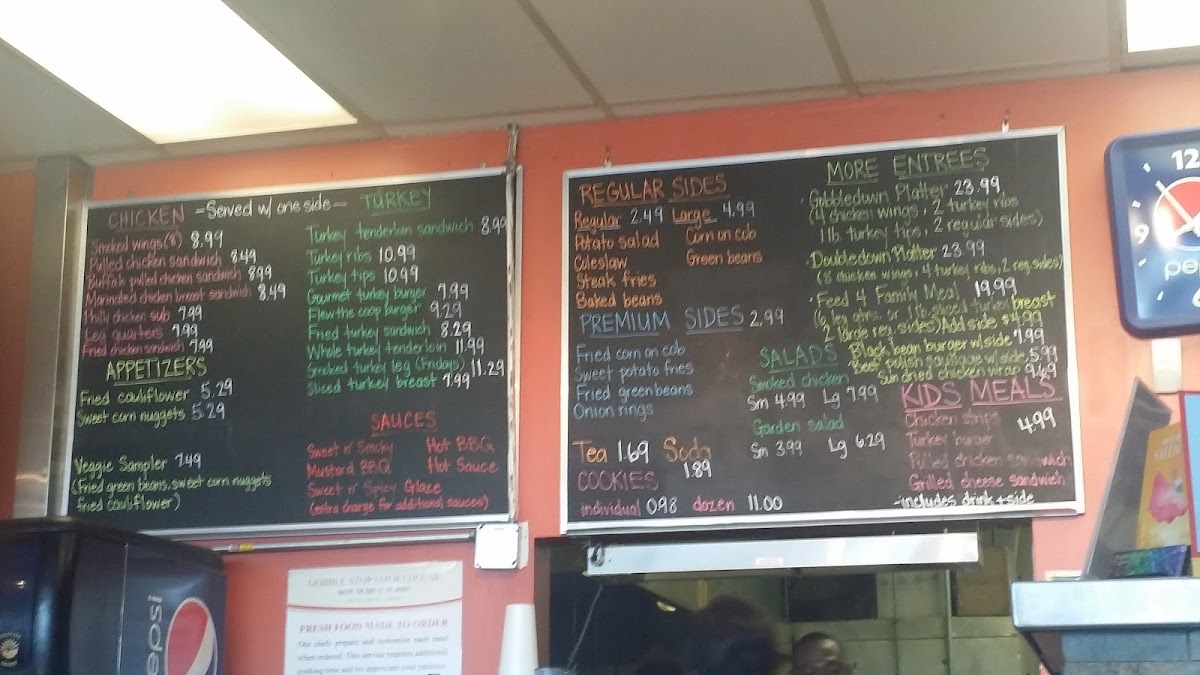 CHICKEN -Served w/ one side- TURKEY
Smoked wings (8) 8.99
Pulled chicken sandwich 8.49
Buffalo pulled chicken sandwich 8.99
Marinated chicken breast sandwich 8.49
Philly chicken sub 7.99
Leg quarters 7.99
Fried chicken sandwich 7.99
APPETIZERS
Fried cauliflower 5.29
Sweet corn nuggets 5.29
Veggie Sampler 7.49
(Fried green beans, sweet corn nuggets
fried cauliflower)
Turkey tenderloin sandwich 8.99
Turkey ribs 10.99
Turkey tips 10.99
Gourmet turkey burger 7.99
Flew the coop burger 9.29
Fried turkey sandwich 8.29
Whole turkey tenderloin 11.99
Smoked turkey leg (Fridays) 11.29
Sliced turkey breast 7.99
SAUCES
Sweet n' Smoky Hot BBQ
Mustard BBQ Hot Sauce
Sweet n' Spicy Glaze
(extra charge for additional sauces)
REGULAR SIDES
Regular 2.49 Large 4.99
Potato salad Corn on cob
Coleslaw Green beans
Steak fries
Baked beans
PREMIUM SIDES 2.99
Fried corn on cob
Sweet potato fries
Fried green beans
Onion rings
Tea 1.69 Soda 1.89
COOKIES
individual 0.98 dozen 11.00
SALADS
Smoked chicken
Sm 4.99 Lg 7.99
Garden salad
Sm 3.99 Lg 6.29
MORE ENTREES
· Gobbledown Platter 23.99
(4 chicken wings, 2 turkey ribs
1 lb turkey tips, 2 regular sides)
· Doubledown Platter 23.99
(8 chicken wings, 4 turkey ribs, 2 reg. sides)
· Feed 4 Family Meal 19.99
(6 leg qtrs. or 1 lb. sliced turkey breast
2 large reg. sides) Add side $4.99
Black bean burger w/side 7.99
Beef polish sausage w/side 5.99
Sun dried chicken wrap 9.69
KIDS MEALS
Chicken strips 4.99
Turkey burger
Pulled chicken sandwich
Grilled cheese sandwich
-includes drink + side
12
9
6
pe
pepsi
GOBBLE STOP SMOKEHOUSE
FRESH FOOD MADE TO ORDER
Our chefs prepare and customize each meal
when ordered. This service requires additional
cooking time and we appreciate your patience.